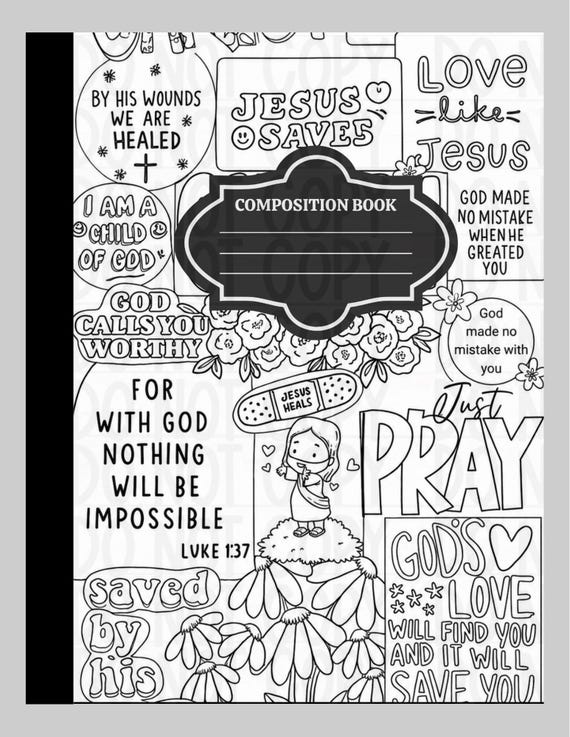 BY HIS WOUNDS
WE ARE
HEALED
JESUS
SAVES
LOVE
like
Jesus
COMPOSITION BOOK
I AM A
CHILD
OF GOD
GOD MADE
NO MISTAKE
WHEN HE
GREATED
YOU
GOD
CALLS YOU
WORTHY
God
made no
mistake with
you
FOR
WITH GOD
NOTHING
WILL BE
IMPOSSIBLE
LUKE 1:37
JESUS
HEALS
Just
PRAY
GOD'S
LOVE
WILL FIND YOU
AND IT WILL
SAVE YOU
saved
by
his
DO NOT COPY